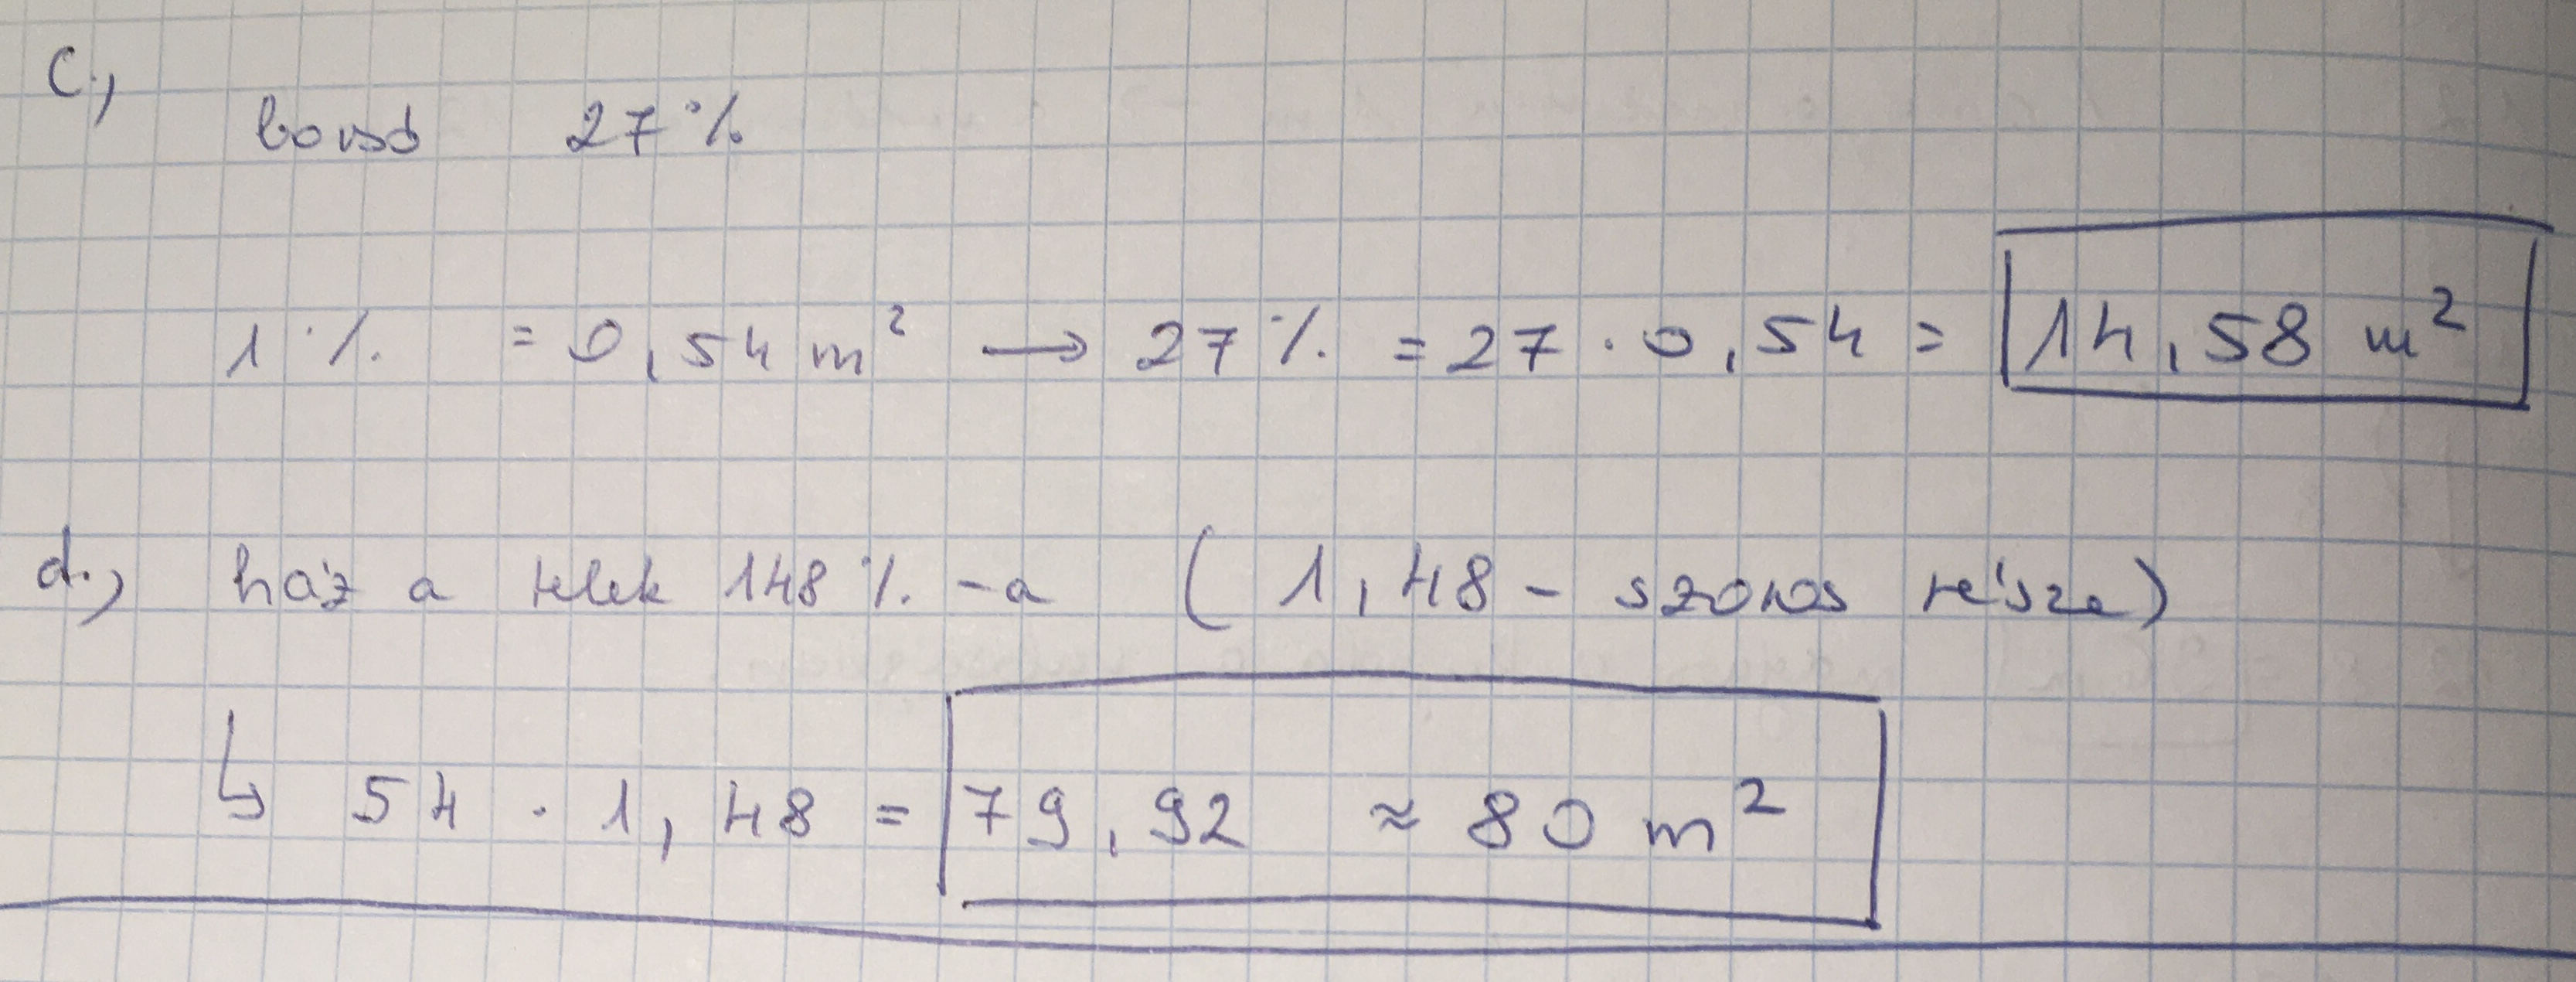 c.,
borsó 27%
1% = 0,54 m² → 27% = 27 · 0,54 = 14,58 m²
d.) ház a telek 148%-a (1,48-szoros része)
↳ 54 · 1,48 = 79,92 ≈ 80 m²